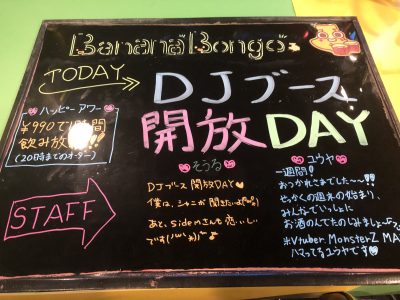 Banana Bongo
TODAY
DJブース
開放DAY
ハッピーアワー
¥990で1時間
飲み放題!!
(20時までのオーダー)
STAFF
そうる
DJブース開放DAY♥
僕は、シャニが聞きたいよ
あと、sideMさんも恋しい
です
ユウヤ
一週間!
おつかれさまでした〜〜!!
せっかくの週末の始まり、
みんなでいっしょに
お酒のんでたのしみましょう
※Vtuber. MonsterZ MA
ハマってるユウヤです